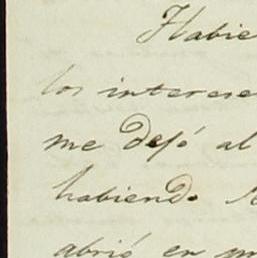 Habie
los interese
me dejó al
habiendo
abrió en